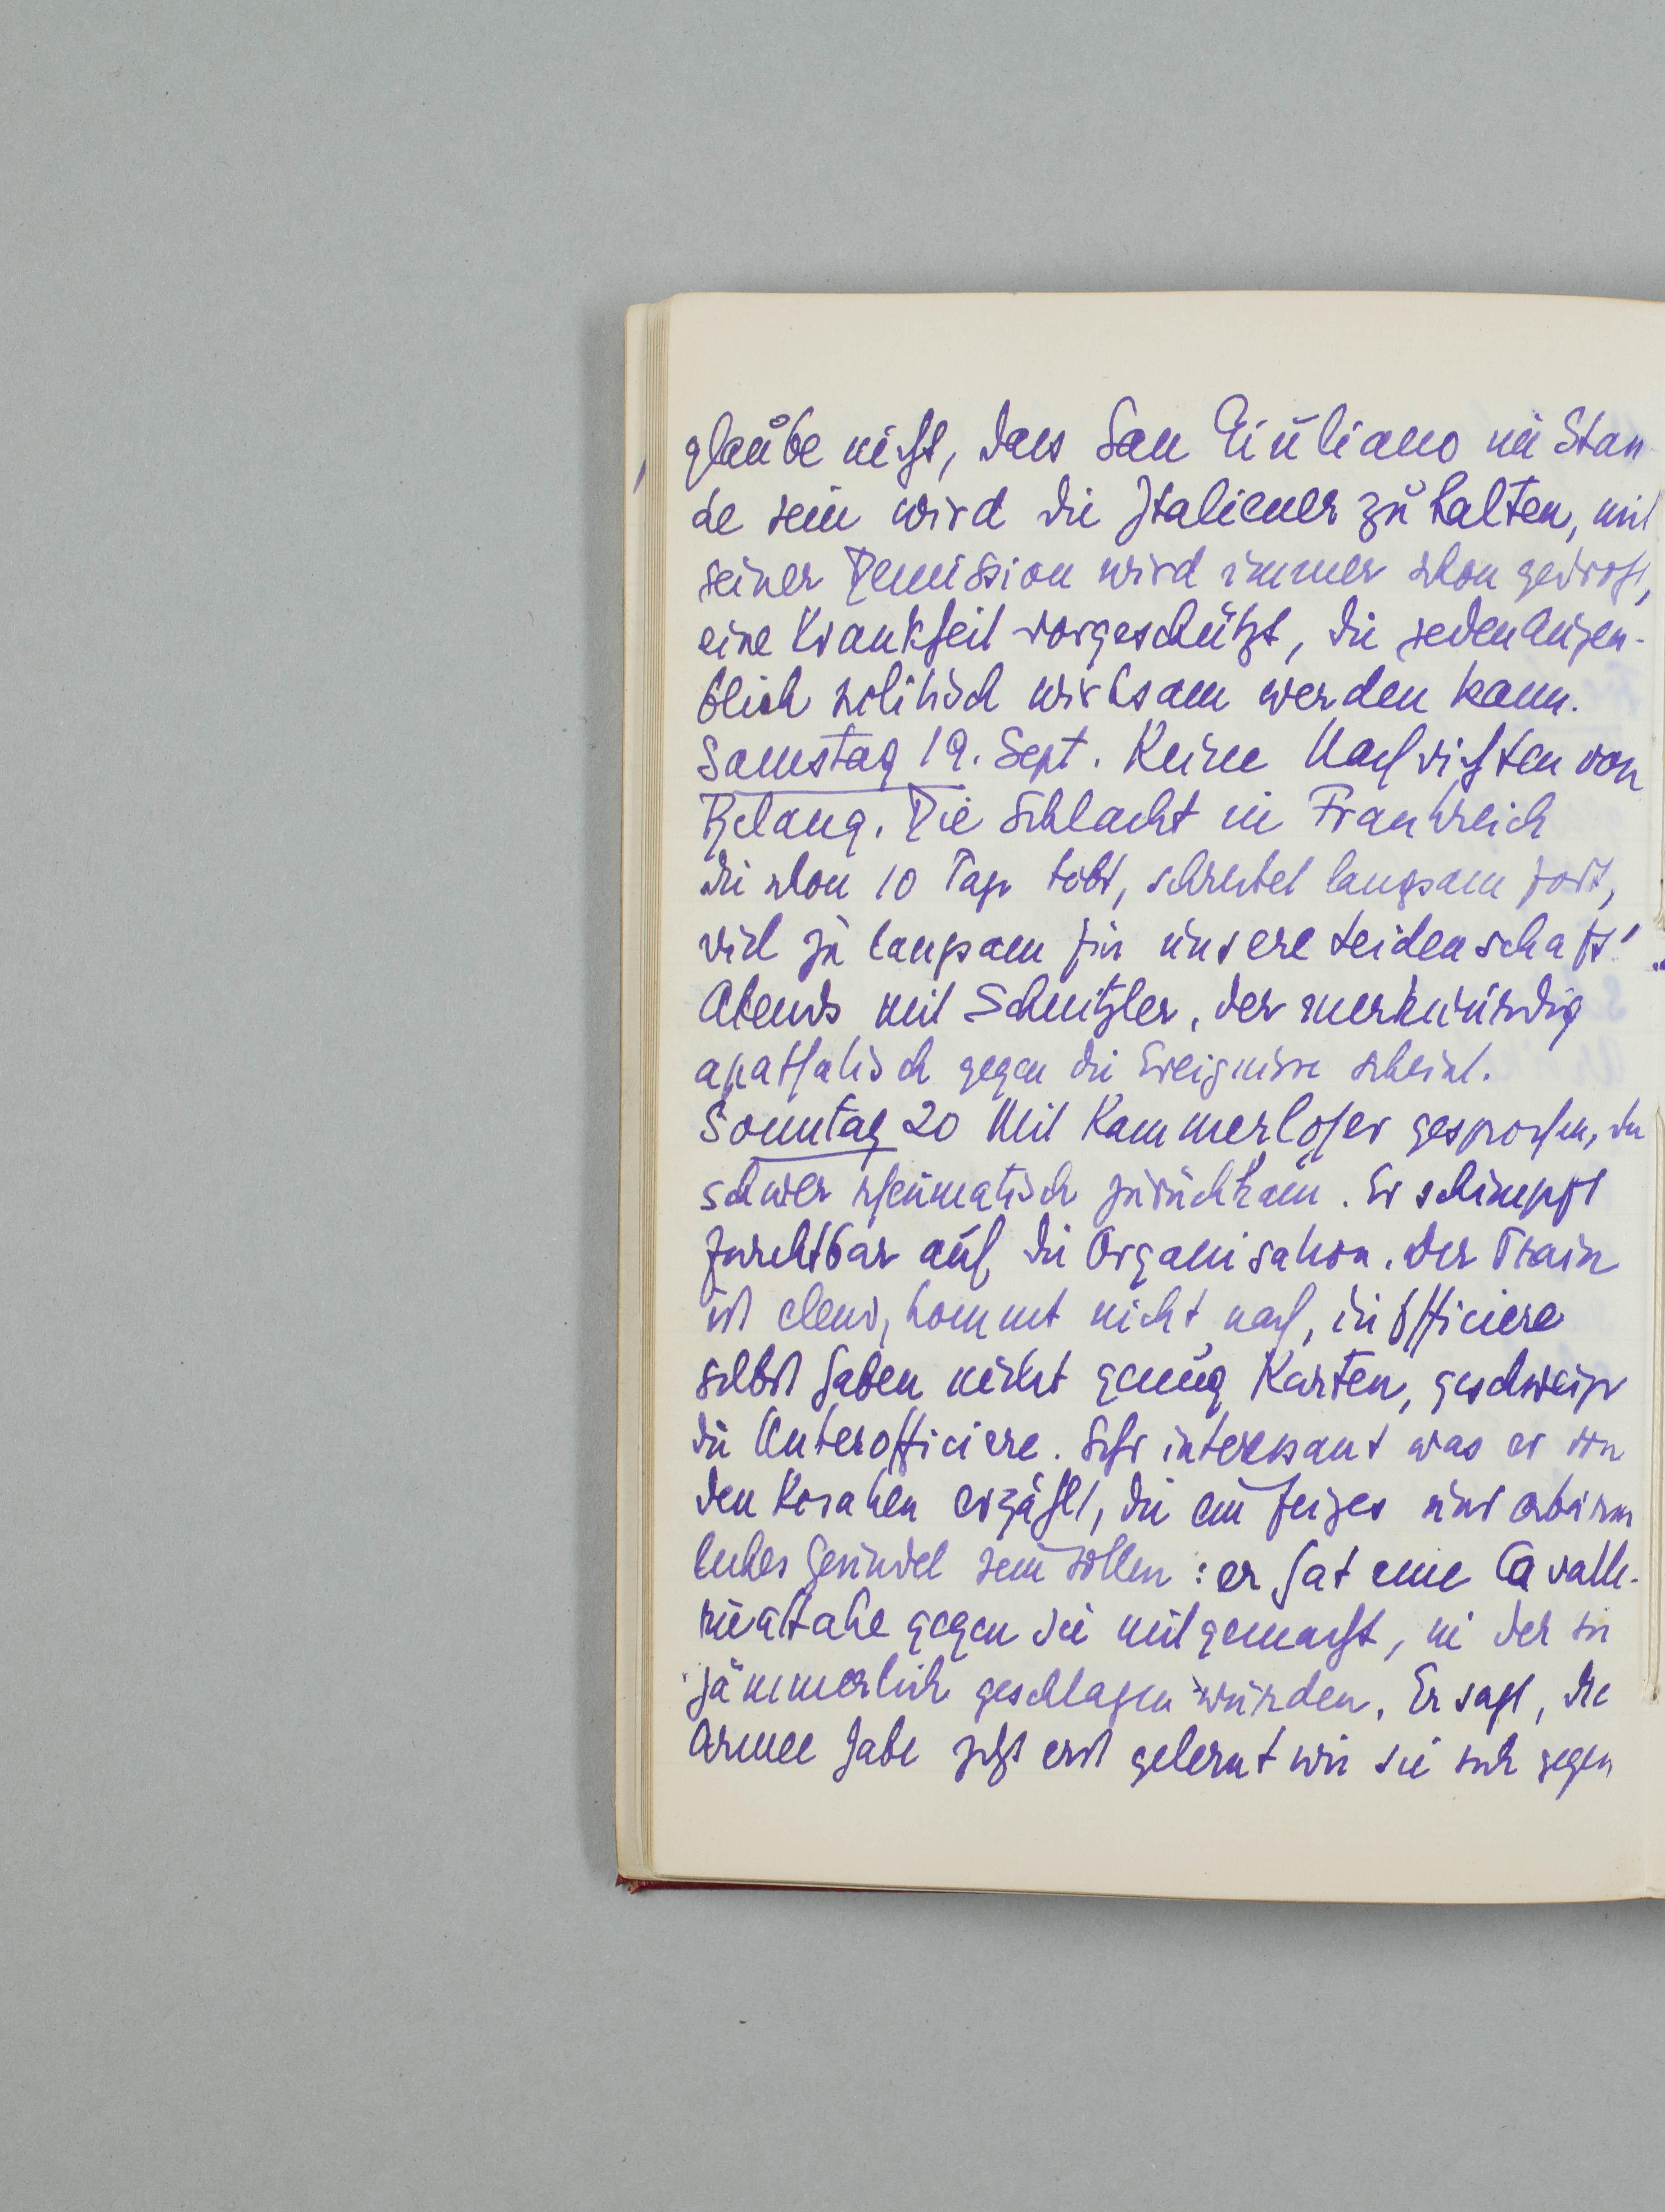 glaube nicht, dass San Giuliano im Stan-
de sein wird die Italiener zu halten, mit
seiner Demission wird immer schon gedroht,
eine Krankheit vorgeschützt, die jeden Augen-
blick politisch wirksam werden kann.
Samstag 19. Sept. Keine Nachrichten von
Belang. Die Schlacht in Frankreich
die schon 10 Tage tobt, schreitet langsam fort,
viel zu langsam für unsere Leidenschaft!
Abends mit Schnitzler, der merkwürdig
apathatisch gegen die Ereignisse scheint.
Sonntag 20 Mit Kammerloher gesprochen, der
schwer rheumatisch zurückkam. Er schimpft
furchtbar auf die Organisation. Der Train
ist elend, kommt nicht nach, die Officiere
selbst haben nicht genug Karten, geschweige
die Unterofficiere. Sehr interessant was er von
den Kosaken erzählt, die ein feiges und erbärm
liches Gesindel sein sollen: er hat eine Cavalle-
rieattake gegen sie mitgemacht, in der sie
jämmerlich geschlagen wurden. Er sagt, die
Armee habe jetzt erst gelernt wie sie sich gegen